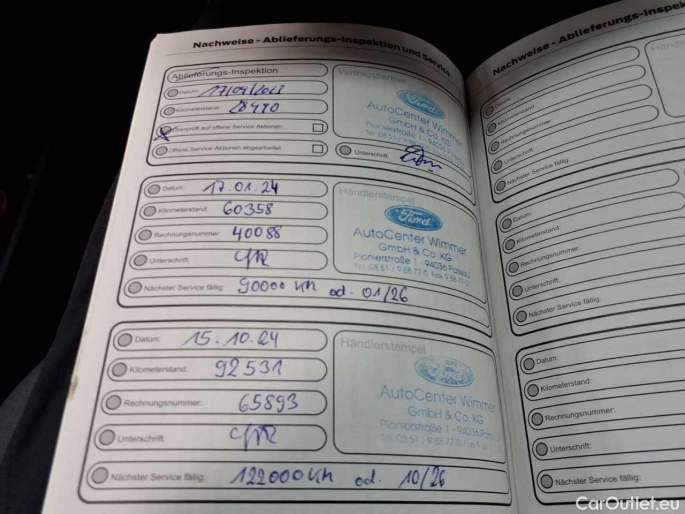 Nachweise - Ablieferungs-Inspektion und Service
Ablieferungs-Inspektion
Datum:
Kilometerstand:
Geprüft auf offene Service Aktionen:
Offene Service Aktionen abgearbeitet:
Vertragspartner
Ford
AutoCenter Wimmer
GmbH & Co. KG
Unterschrift:
Datum: 17.01.24
Kilometerstand: 60358
Rechnungsnummer: 40088
Unterschrift:
Nächster Service fällig: 90000 km od. 01/26
Händlerstempel
Ford
AutoCenter Wimmer
GmbH & Co. KG
Pionierstraße 1 · 94036 Passau
Datum: 15.10.24
Kilometerstand: 92531
Rechnungsnummer: 65893
Unterschrift:
Nächster Service fällig: 122000 km od. 10/26
Händlerstempel
Ford
AutoCenter Wimmer
GmbH & Co. KG
Pionierstraße 1 · 94036
Nachweise - Ablieferungs-Inspek
Datum:
Kilometerstand:
Rechnungsnummer:
Unterschrift:
Nächster Service fällig:
Datum:
Kilometerstand:
Rechnungsnummer:
Unterschrift:
Nächster Service fällig:
Datum:
Kilometerstand:
Rechnungsnummer:
Unterschrift:
Nächster Service fällig:
CarOutlet.eu